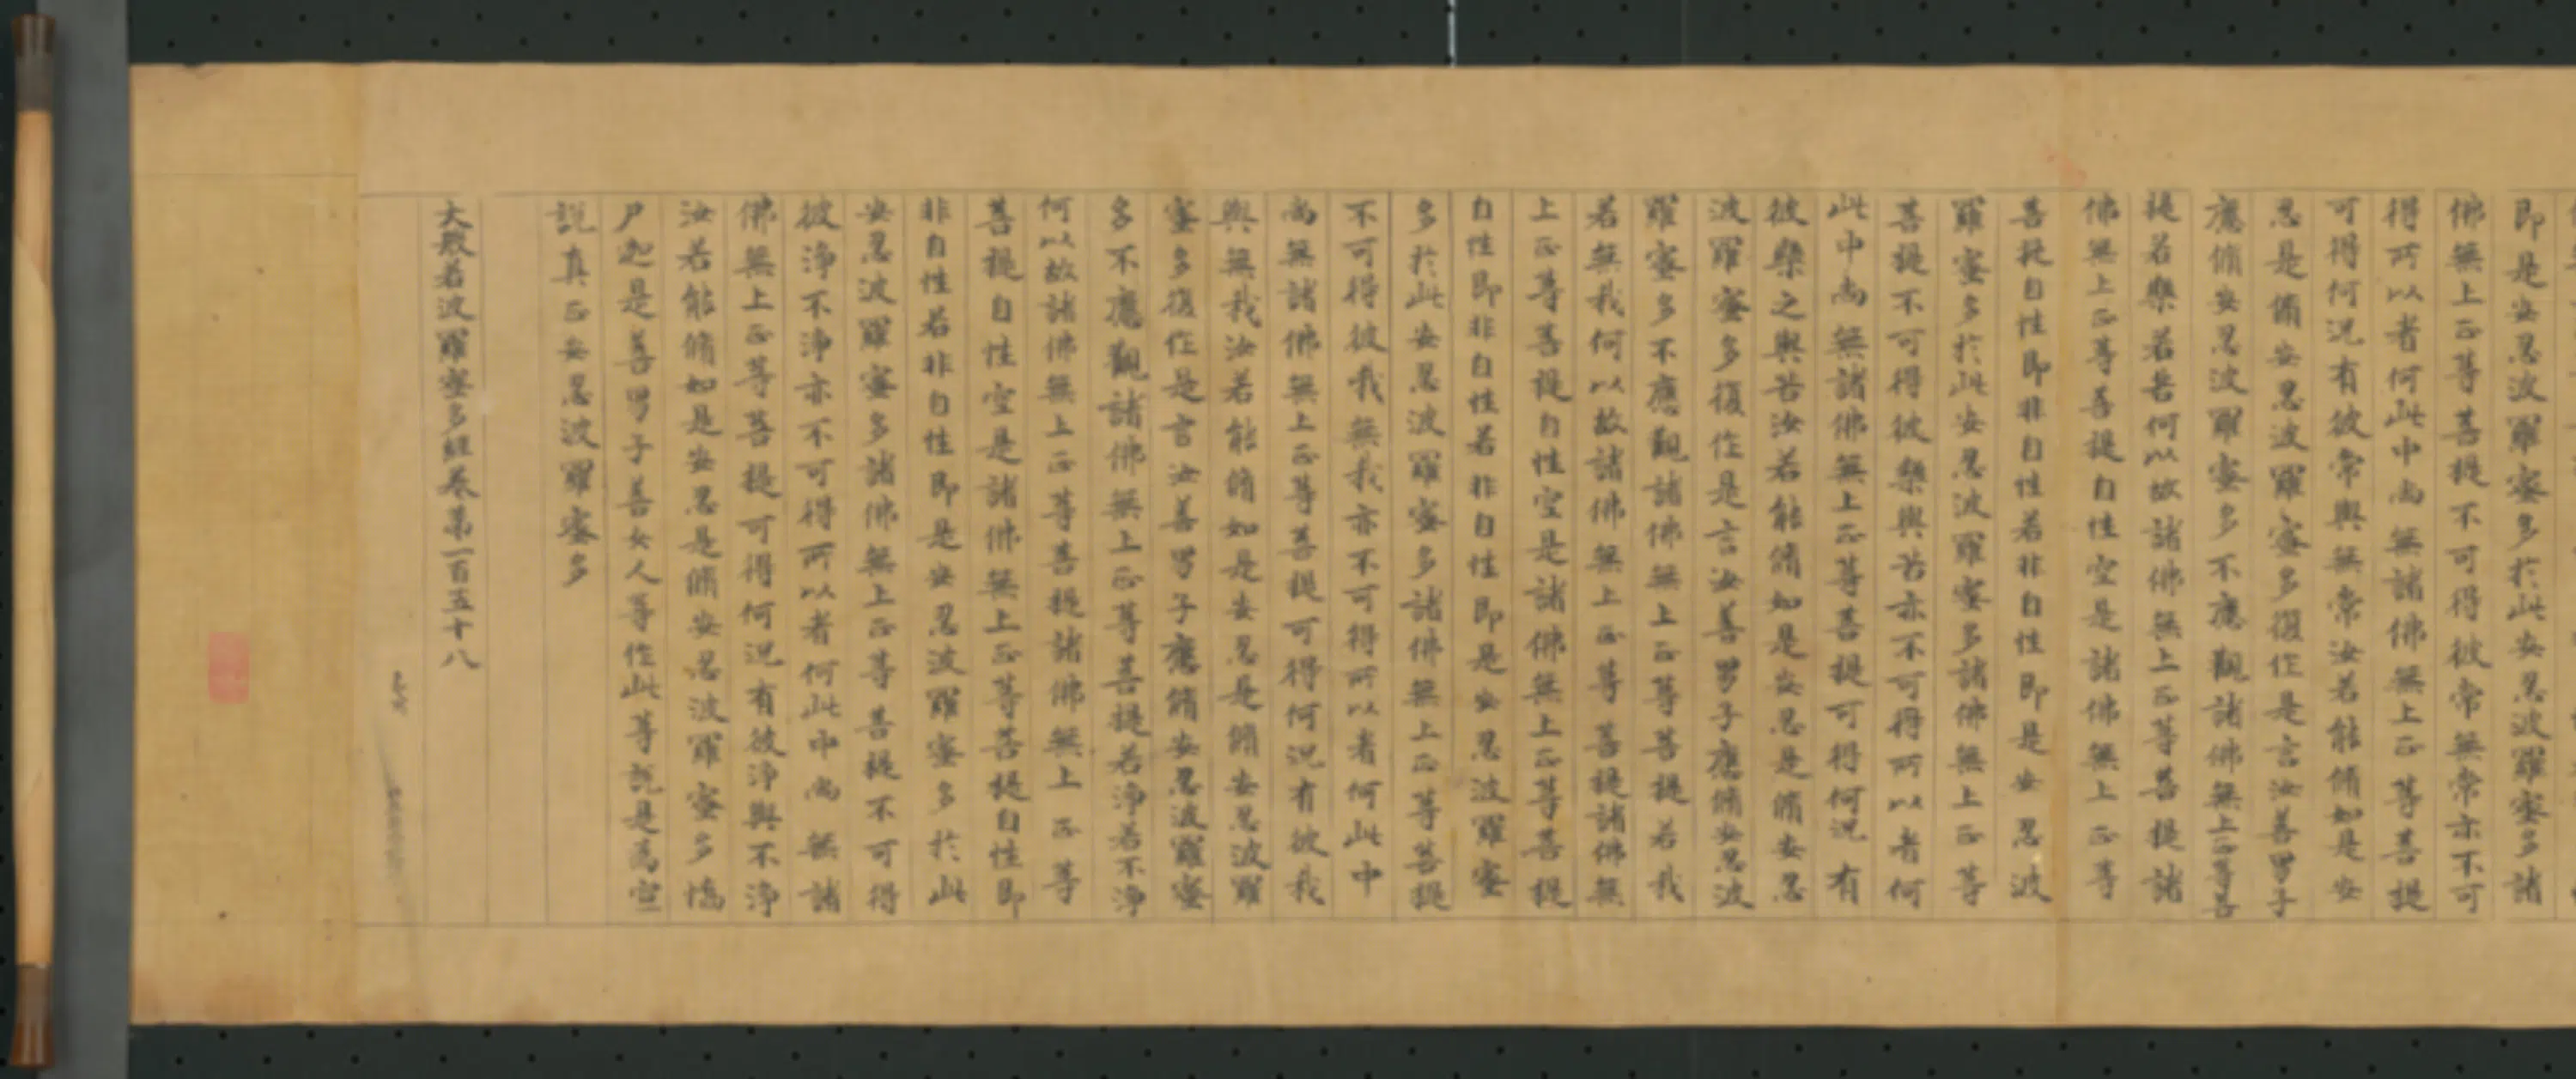 即是安忍波羅蜜多於此安忍波羅蜜多諸
佛無上正等菩提不可得彼常無常亦不可
得所以者何此中尚無諸佛無上正等菩提
可得何況有彼常與無常汝若能脩如是安
忍是脩安忍波羅蜜多復作是言汝善男子
應脩安忍波羅蜜多不應觀諸佛無上正等菩
提若樂若苦何以故諸佛無上正等菩提諸
佛無上正等菩提自性空是諸佛無上正等
菩提自性即非自性若非自性即是安忍波
羅蜜多於此安忍波羅蜜多諸佛無上正等
菩提不可得彼樂與苦亦不可得所以者何
此中尚無諸佛無上正等菩提可得何況有
彼樂之與苦汝若能脩如是安忍是脩安忍
波羅蜜多復作是言汝善男子應脩安忍波
羅蜜多不應觀諸佛無上正等菩提若我
若無我何以故諸佛無上正等菩提諸佛無
上正等菩提自性空是諸佛無上正等菩提
自性即非自性若非自性即是安忍波羅蜜
多於此安忍波羅蜜多諸佛無上正等菩提
不可得彼我無我亦不可得所以者何此中
尚無諸佛無上正等菩提可得何況有彼我
與無我汝若能脩如是安忍是脩安忍波羅
蜜多復作是言汝善男子應脩安忍波羅蜜
多不應觀諸佛無上正等菩提若淨若不淨
何以故諸佛無上正等菩提諸佛無上正等
菩提自性空是諸佛無上正等菩提自性即
非自性若非自性即是安忍波羅蜜多於此
安忍波羅蜜多諸佛無上正等菩提不可得
彼淨不淨亦不可得所以者何此中尚無諸
佛無上正等菩提可得何況有彼淨與不淨
汝若能脩如是安忍是脩安忍波羅蜜多憍
尸迦是善男子善女人等作此等說是為宣
說真正安忍波羅蜜多
大般若波羅蜜多經卷第一百五十八